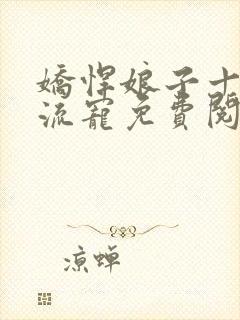 嬌悍娘子十
流寵免費閱
凉蝉